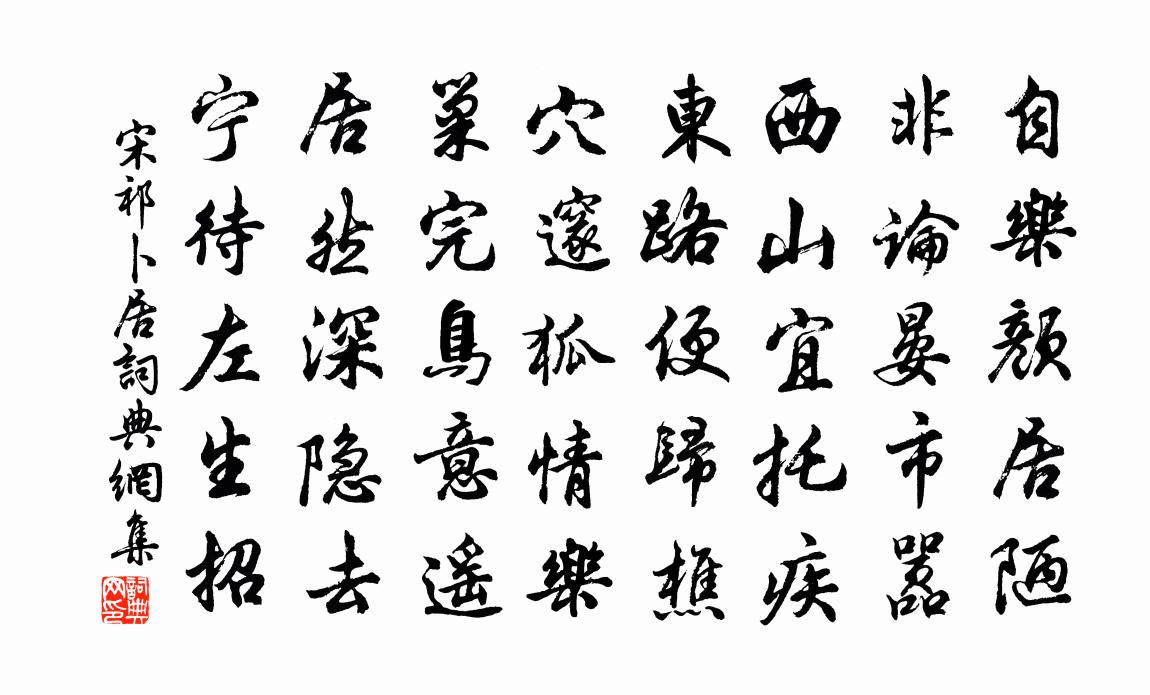 自樂顔居陋
非論晏市囂
西山宜托疾
東路便歸樵
穴邃狐情樂
巢完鳥意遥
居然深隐去
宁待左生招
宋祁卜居詞典網集
詞典网印